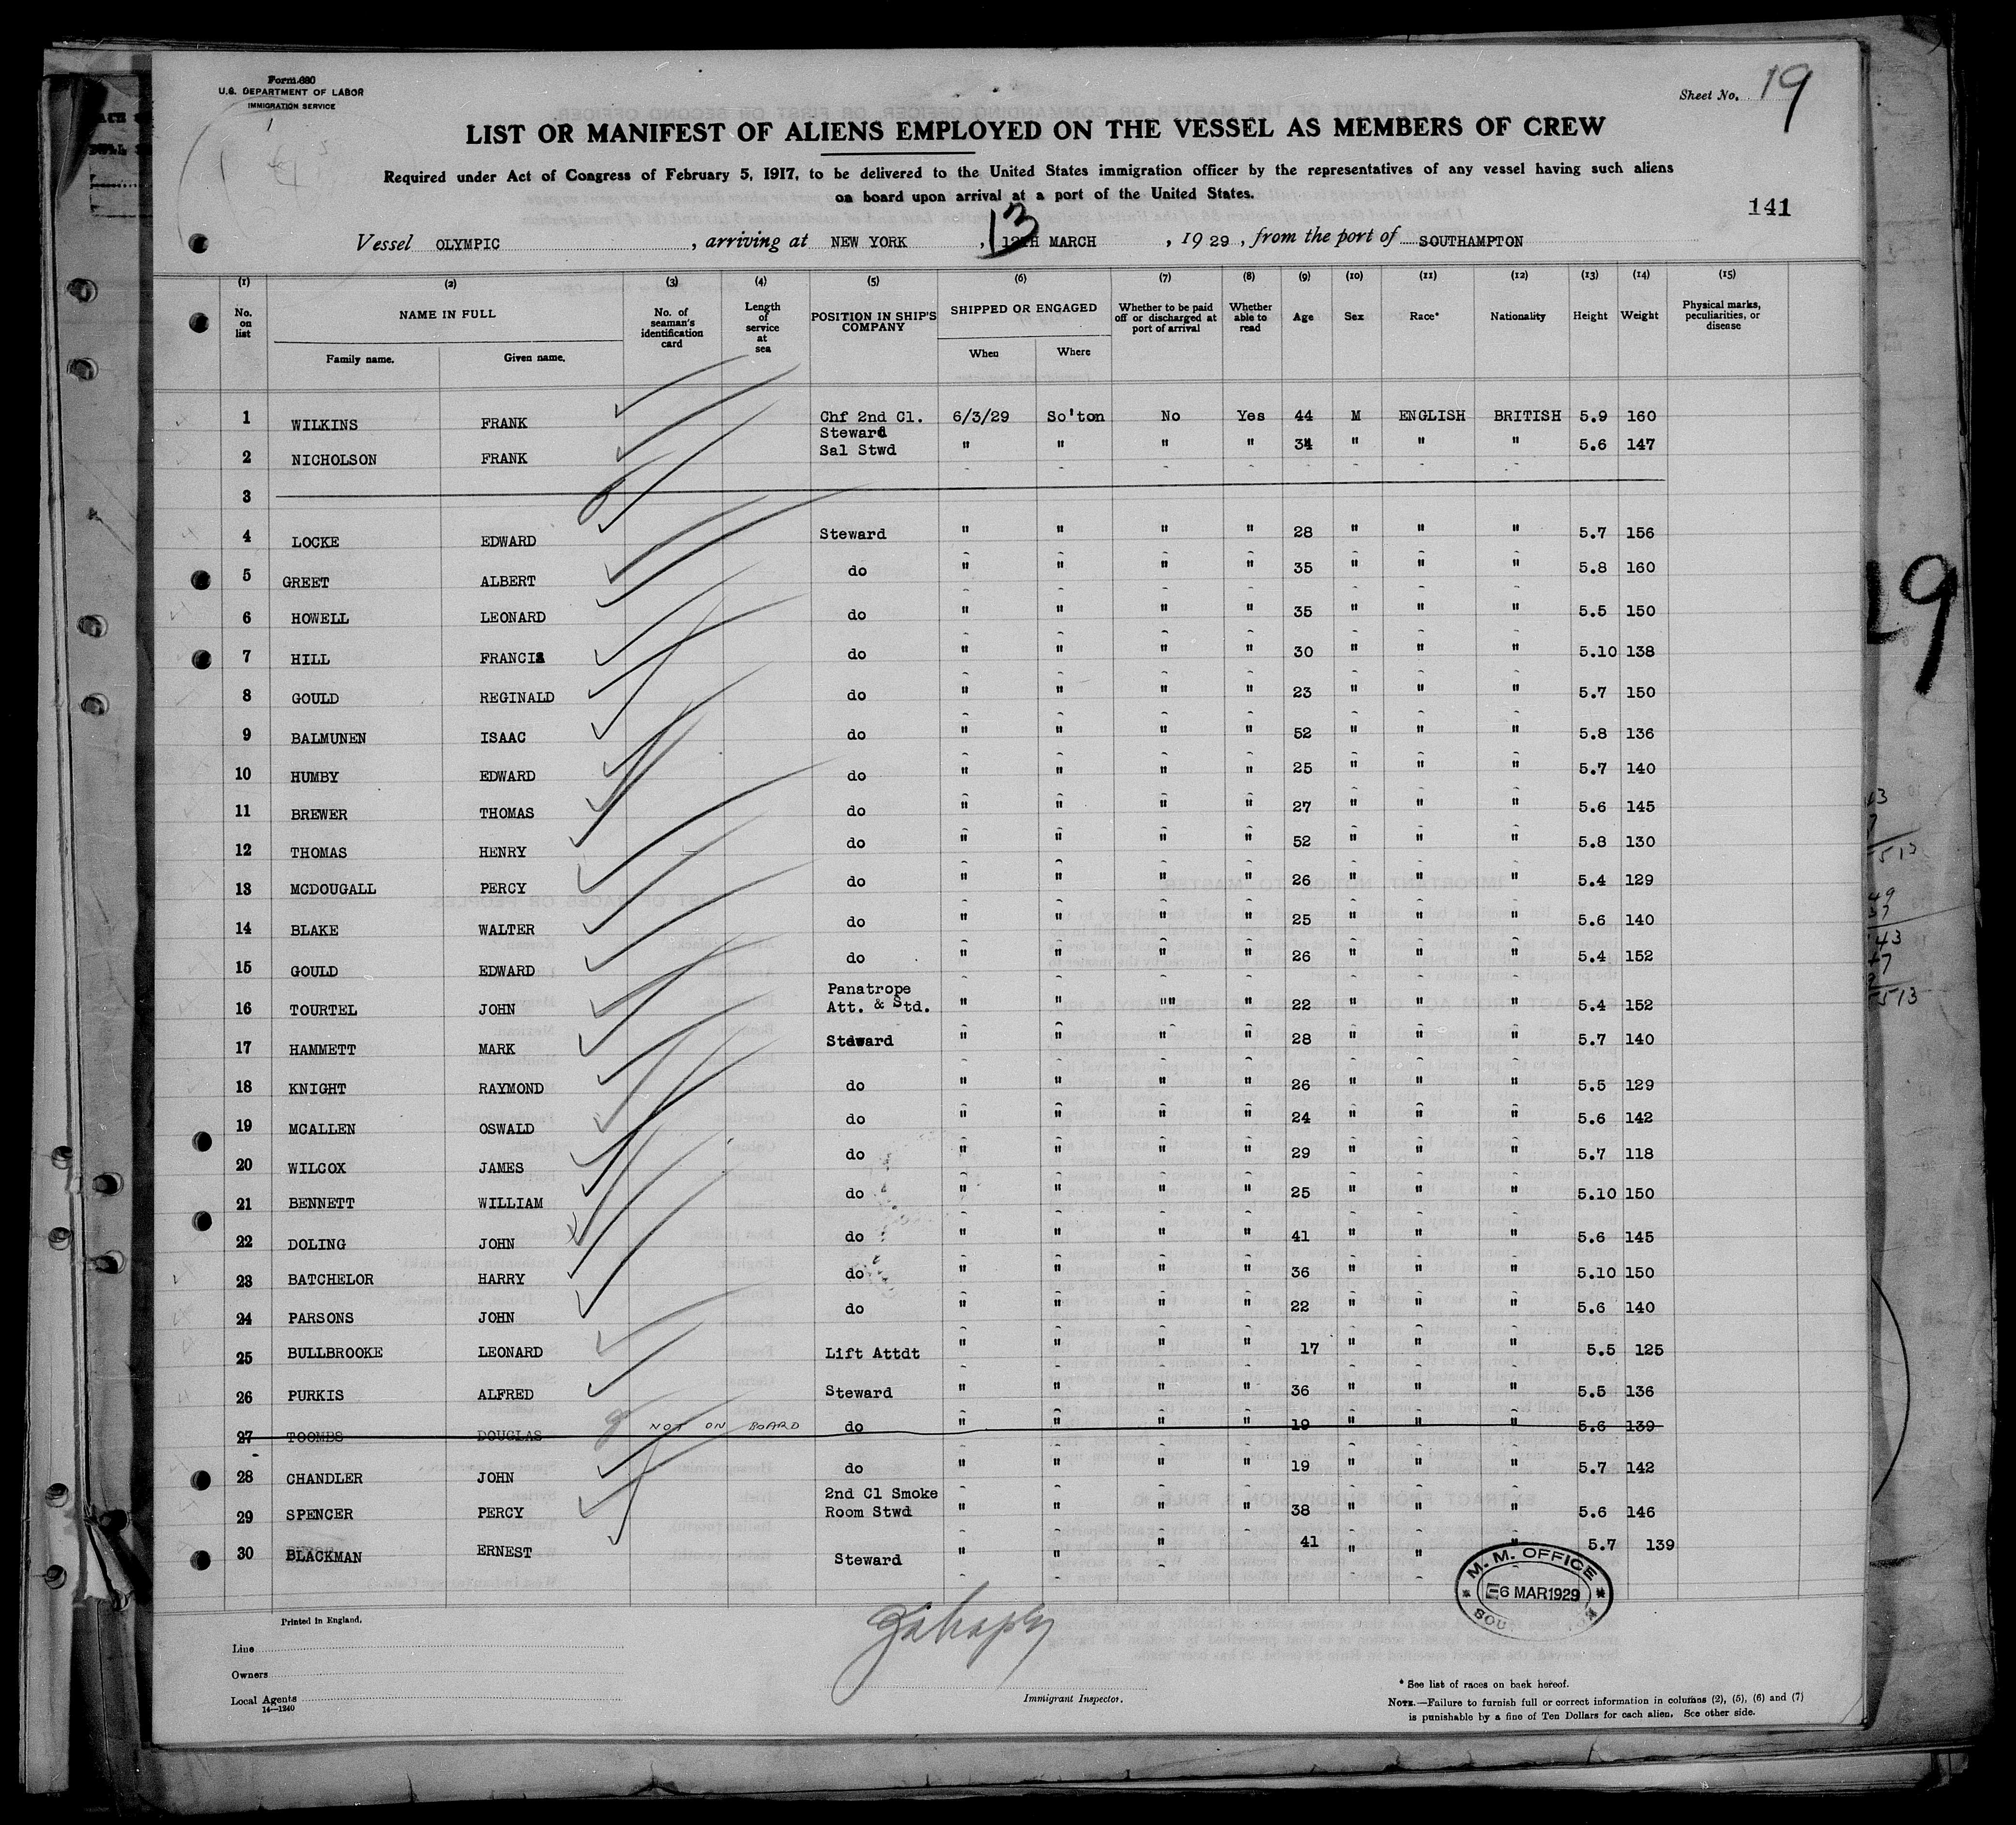 Form 680
U.S. DEPARTMENT OF LABOR
IMMIGRATION SERVICE
Sheet No. 19
LIST OR MANIFEST OF ALIENS EMPLOYED ON THE VESSEL AS MEMBERS OF CREW
Required under Act of Congress of February 5, 1917, to be delivered to the United States immigration officer by the representatives of any vessel having such aliens
on board upon arrival at a port of the United States.
141
Vessel OLYMPIC, arriving at NEW YORK, 13 12TH MARCH, 1929, from the port of SOUTHAMPTON
(1) (2) (3) (4) (5) (6) (7) (8) (9) (10) (11) (12) (13) (14) (15)
No. on list NAME IN FULL No. of seaman's identification card Length of service at sea POSITION IN SHIP'S COMPANY SHIPPED OR ENGAGED Whether to be paid off or discharged at port of arrival Whether able to read Age Sex Race* Nationality Height Weight Physical marks, peculiarities, or disease
Family name. Given name. When Where
1 WILKINS FRANK Chf 2nd Cl. Steward 6/3/29 So'ton No Yes 44 M ENGLISH BRITISH 5.9 160
2 NICHOLSON FRANK Sal Stwd " " " " 34 " " " 5.6 147
3
4 LOCKE EDWARD Steward " " " " 28 " " " 5.7 156
5 GREET ALBERT do " " " " 35 " " " 5.8 160
6 HOWELL LEONARD do " " " " 35 " " " 5.5 150
7 HILL FRANCIS do " " " " 30 " " " 5.10 138
8 GOULD REGINALD do " " " " 23 " " " 5.7 150
9 BALMUNEN ISAAC do " " " " 52 " " " 5.8 136
10 HUMBY EDWARD do " " " " 25 " " " 5.7 140
11 BREWER THOMAS do " " " " 27 " " " 5.6 145
12 THOMAS HENRY do " " " " 52 " " " 5.8 130
13 MCDOUGALL PERCY do " " " " 26 " " " 5.4 129
14 BLAKE WALTER do " " " " 25 " " " 5.6 140
15 GOULD EDWARD do " " " " 26 " " " 5.4 152
16 TOURTEL JOHN Panatrope Att. & Std. " " "" " 22 " " " 5.4 152
17 HAMMETT MARK Steward " " " " 28 " " " 5.7 140
18 KNIGHT RAYMOND do " " " " 26 " " " 5.5 129
19 MCALLEN OSWALD do " " " " 24 " " " 5.6 142
20 WILCOX JAMES do " " " " 29 " " " 5.7 118
21 BENNETT WILLIAM do " " " " 25 " " " 5.10 150
22 DOLING JOHN do " " " " 41 " " " 5.6 145
23 BATCHELOR HARRY do " " " " 36 " " " 5.10 150
24 PARSONS JOHN do " " " " 22 " " " 5.6 140
25 BULLBROOKE LEONARD Lift Attdt " " " " 17 " " " 5.5 125
26 PURKIS ALFRED Steward " " " " 36 " " " 5.5 136
27 TOOMBS DOUGLAS NOT ON BOARD do " " " " 19 " " " 5.6 139
28 CHANDLER JOHN do " " " " 19 " " " 5.7 142
29 SPENCER PERCY 2nd Cl Smoke Room Stwd " " " " 38 " " " 5.6 146
30 BLACKMAN ERNEST Steward " " " " 41 " " " 5.7 139
M. M. OFFICE
6 MAR 1929
Printed in England.
Line
Owners
Local Agents
14—1240
Immigrant Inspector.
* See list of races on back hereof.
NOTE.—Failure to furnish full or correct information in columns (2), (5), (6) and (7)
is punishable by a fine of Ten Dollars for each alien. See other side.